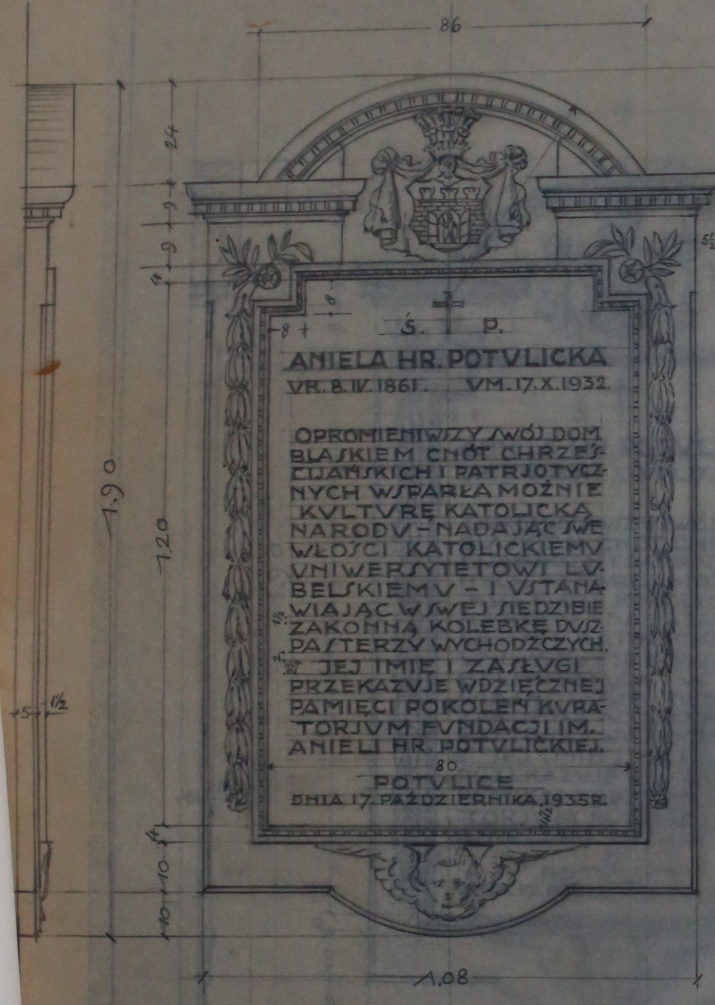 86
24
9
9
4
5½
8
8
Ś. P.
ANIELA HR. POTVLICKA
VR. 8. IV. 1861. VM. 17. X. 1932.
OPROMIENIWSZY SWÓJ DOM
BLASKIEM CNÓT CHRZEŚ-
CIJAŃSKICH I PATRJOTYCZ-
NYCH WSPARŁA MOŻNIE
KVLTVRĘ KATOLICKĄ
NARODV – NADAJĄC SWE
WŁOŚCI KATOLICKIEMV
VNIWERSYTETOWI LV-
BELSKIEMV – I VSTANA-
WIAJĄC W SWEJ SIEDZIBIE
ZAKONNĄ KOLEBKĘ DVSZ-
PASTERZY WYCHODŹCZYCH.
JEJ IMIĘ I ZASŁVGI
PRZEKAZVJE WDZIĘCZNEJ
PAMIĘCI POKOLEŃ KVRA-
TORJVM FVNDACJI IM.
ANIELI HR. POTVLICKIEJ.
80
POTVLICE
DNIA 17. PAŹDZIERNIKA, 1935R.
1.90
1.20
1½
2
5
1½
4
10
10
1.08